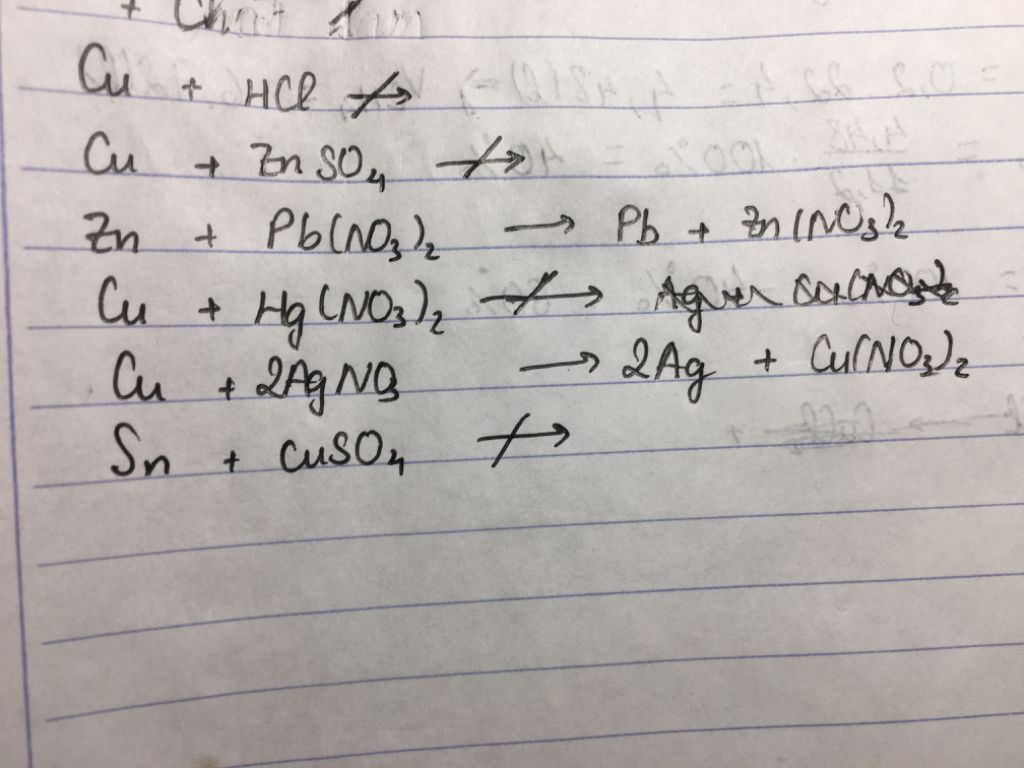 Cu + HCl ↛
Cu + ZnSO₄ ↛
Zn + Pb(NO₃)₂ → Pb + Zn(NO₃)₂
Cu + Hg(NO₃)₂ ↛
Cu + 2AgNO₃ → 2Ag + Cu(NO₃)₂
Sn + CuSO₄ ↛